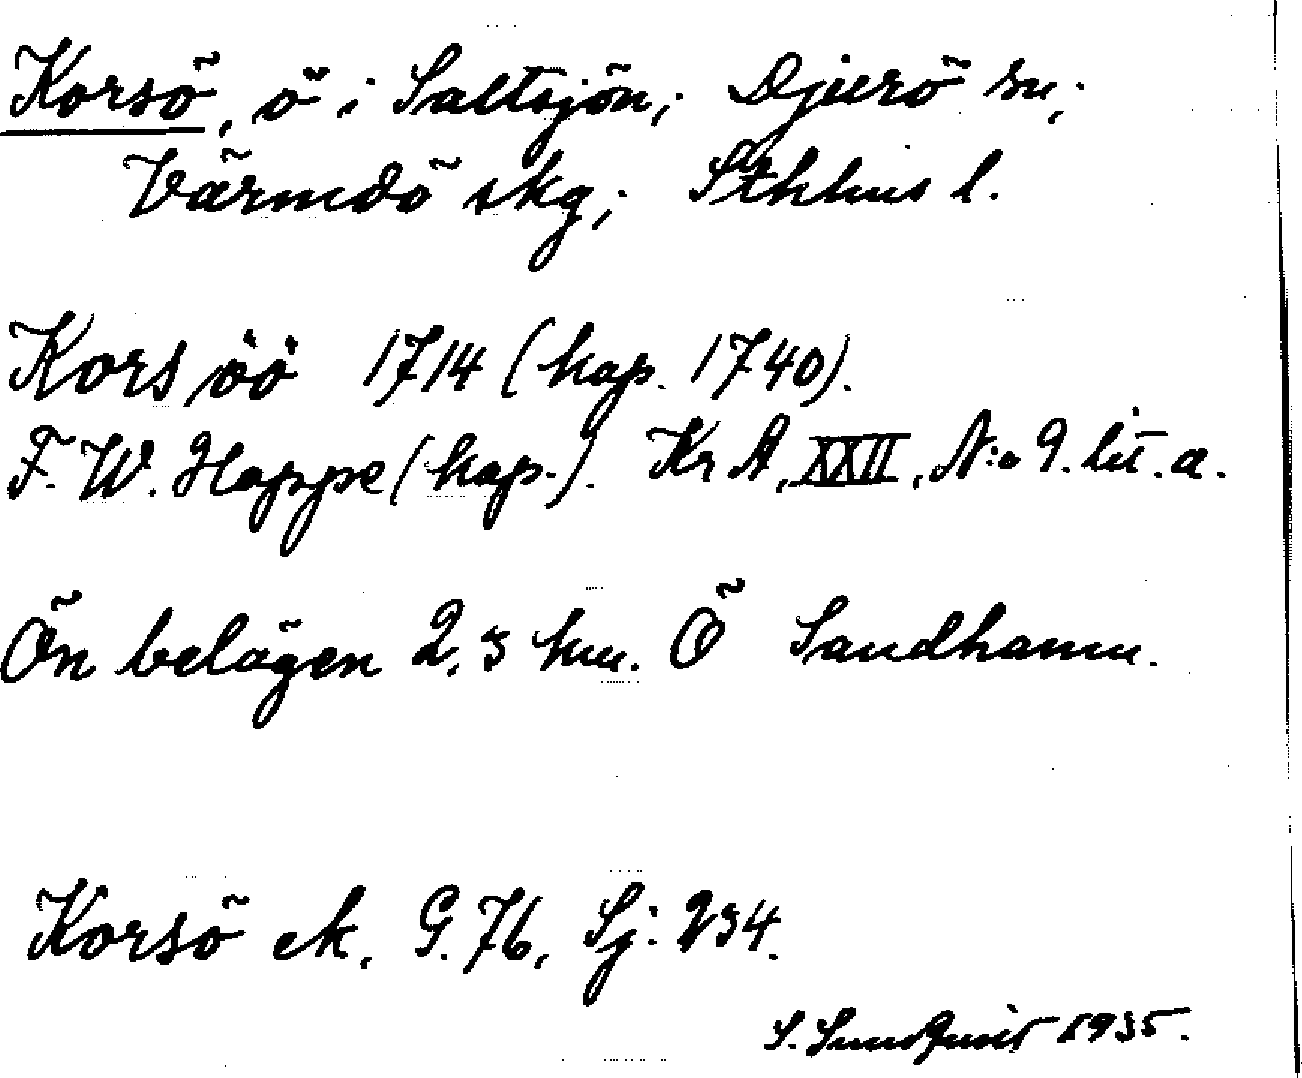 Korsö, ö i Saltsjön; Djurö sn;
Värmdö skg; Sthlms l.
Kors öö 1714 (kop. 1740).
F. W. Hoppe (kop.). Kr A, XXII, N:o 9. lit. a.
Ön belägen 2,3 km. Ö Sandhamn.
Korsö ek. G. 76, Sj: 234.
S. Sundqvist 1935.